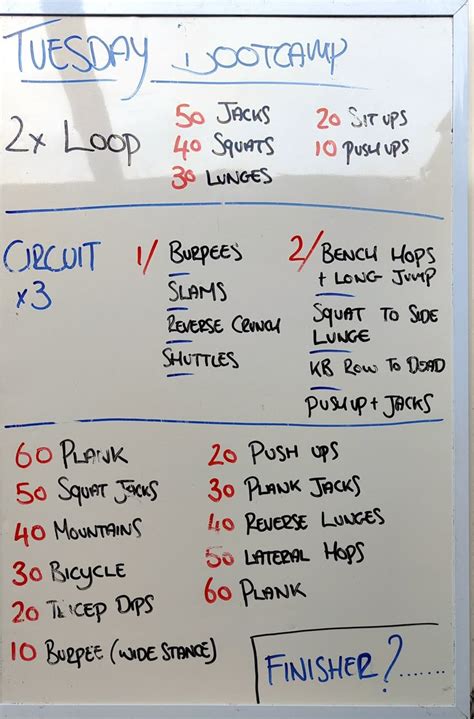 TUESDAY BOOTCAMP
2x LOOP
50 JACKS
40 SQUATS
30 LUNGES
20 SIT UPS
10 PUSH UPS
CIRCUIT
x3
1/ BURPEES
SLAMS
REVERSE CRUNCH
SHUTTLES
2/ BENCH HOPS
+ LONG JUMP
SQUAT TO SIDE
LUNGE
KB ROW TO DEAD
PUSH UP + JACKS
60 PLANK
50 SQUAT JACKS
40 MOUNTAINS
30 BICYCLE
20 TRICEP DIPS
10 BURPEE (WIDE STANCE)
20 PUSH UPS
30 PLANK JACKS
40 REVERSE LUNGES
50 LATERAL HOPS
60 PLANK
FINISHER?.......